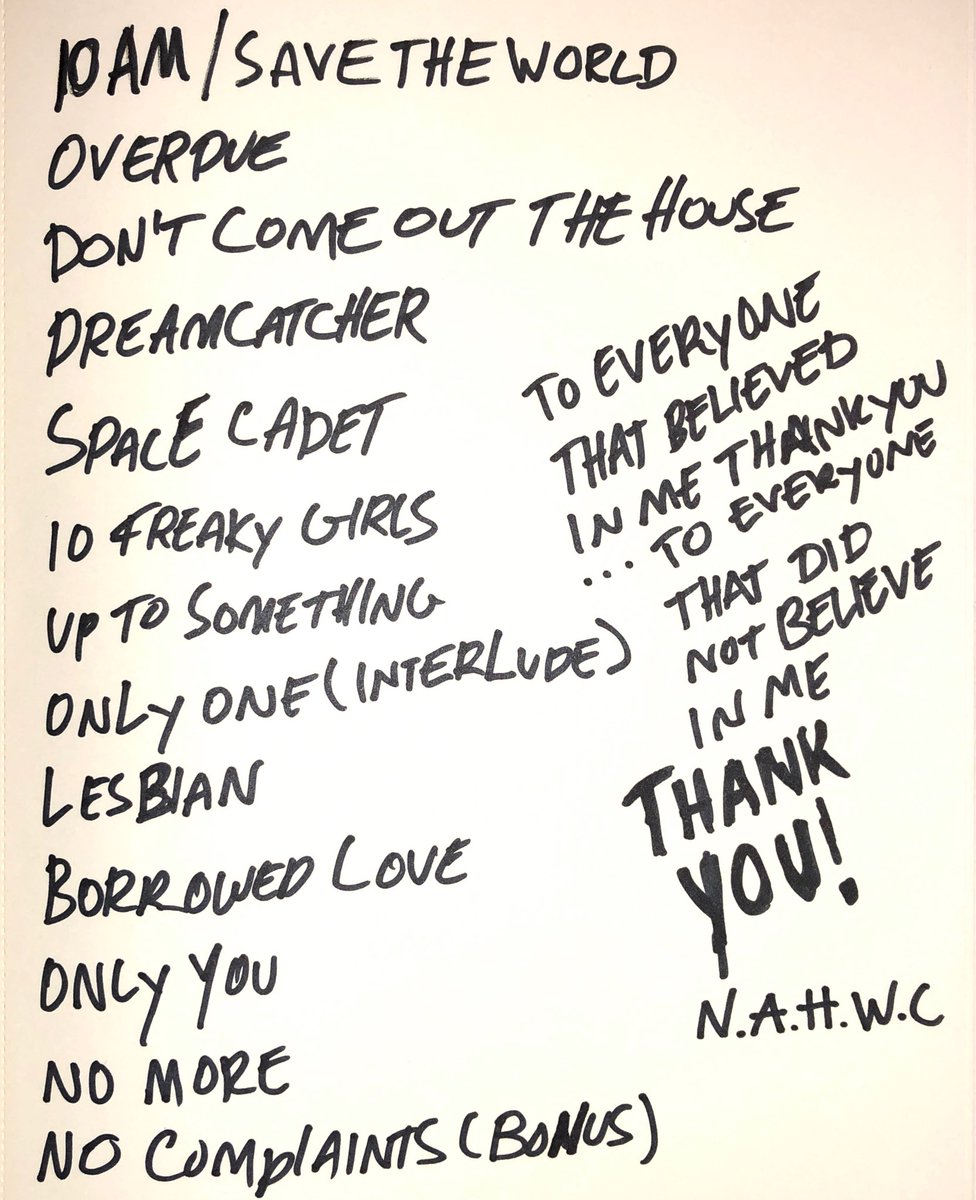 10AM/SAVETHEWORLD
OVERDUE
DON'T COME OUT THE HOUSE
DREAMCATCHER
SPACE CADET
10 FREAKY GIRLS
UP TO SOMETHING
ONLY ONE (INTERLUDE)
LESBIAN
BORROWED LOVE
ONLY YOU
NO MORE
NO COMPLAINTS (BONUS)
TO EVERYONE
THAT BELIEVED
IN ME THANK YOU
... TO EVERYONE
THAT DID
NOT BELIEVE
IN ME
THANK
YOU!
N.A.H.W.C